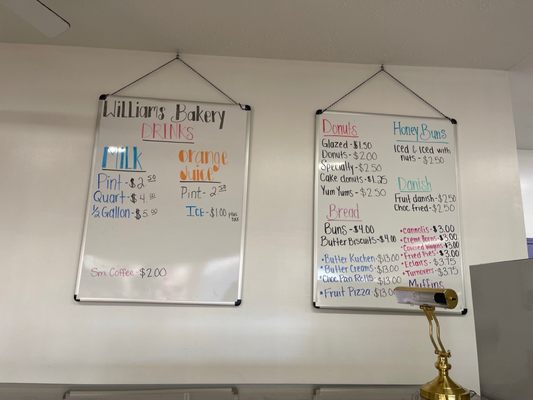 Williams Bakery
DRINKS
MILK
Pint - $2.50
Quart - $4
½ Gallon - $5
orange
Juice
Pint - 2.50
ICE - $1.00 plus
TAX
Sm Coffee - $2.00
Donuts
Glazed - $1.50
Donuts - $2.00
Specialty - $2.50
Cake donuts - $1.25
Yum Yums - $2.50
Bread
Buns - $4.00
Butter Biscuits - $4.00
Butter Kuchen - $13.00
Butter Creams - $13.00
Choc Pan Rolls - $13.00
Fruit Pizza - $13.00
Honey Buns
Iced & Iced with
nuts - $2.50
Danish
Fruit danish - $2.50
Choc fried - $2.50
Cannolis - $3.00
Creme Horns - $3.00
$3.00
Fried Pies - $3.00
Eclairs - $3.75
Turnovers - $3.75
Muffins